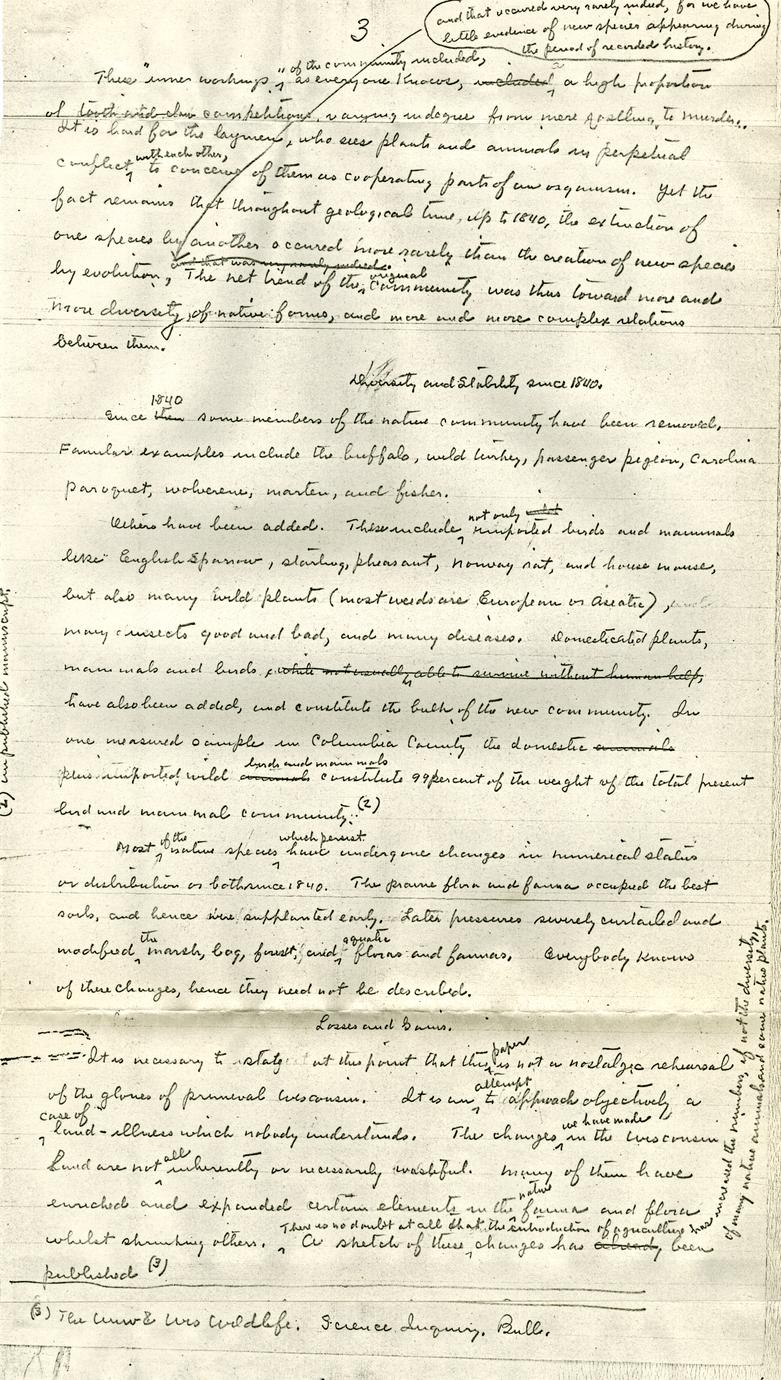 3
and that occured very rarely indeed, for we have
little evidence of new species appearing during
the period of recorded history.
of the community included,
These "inner workings", as everyone knows, included a high proportion
of tooth and claw competition, varying in degree from mere jostling to murder.
It is hard for the layman, who sees plants and animals in perpetual
with each other,
conflict to conceive of them as cooperating parts of an organism. Yet the
fact remains that throughout geological time, up to 1840, the extinction of
one species by another occured more rarely than the creation of new species
and that was very rarely indeed.
original
by evolution, The net trend of the community was thus toward more and
more diversity, of native forms, and more and more complex relations
between them.
Diversity and Stability since 1840.
1840
Since then some members of the native community have been removed.
Familiar examples include the buffalo, wild turkey, passenger pigeon, Carolina
paroquet, wolverene, marten, and fisher.
not only
Others have been added. These include imported birds and mammals
like English Sparrow, starling, pheasant, Norway rat, and house mouse,
but also many wild plants (most weeds are European or Asiatic), and
many insects good and bad, and many diseases. Domesticated plants,
mammals and birds, while not usually able to survive without human help,
have also been added, and constitute the bulk of the new community. In
one measured sample in Columbia County the domestic animals
birds and mammals
plus imported wild animals constitute 99 percent of the weight of the total present
bird and mammal community. (2)
of the
which persist
Most native species have undergone changes in numerical status
or distribution or both since 1840. The prairie flora and fauna occupied the best
soils, and hence were supplanted early. Later pressures severely curtailed and
the
aquatic
modified marsh, bog, forest, and floras and faunas. Everybody knows
of these changes, hence they need not be described.
Losses and Gains.
paper
It is necessary to state at this point that this is not a nostalgic rehearsal
attempt
of the glories of primeval Wisconsin. It is an to approach objectively a
case of
we have made
land-illness which nobody understands. The changes in the Wisconsin
all
land are not inherently or necessarily wasteful. Many of them have
native
enriched and expanded certain elements in the fauna and flora
There is no doubt at all that the introduction of agriculture has
whilst shrinking others. A sketch of these changes has already been
published (3)
(3) The Univ & Wis Wildlife. Science Inquiry. Bull.
(2) unpublished manuscript.
increased the numbers, if not the diversity,
of many native animals and some native plants.